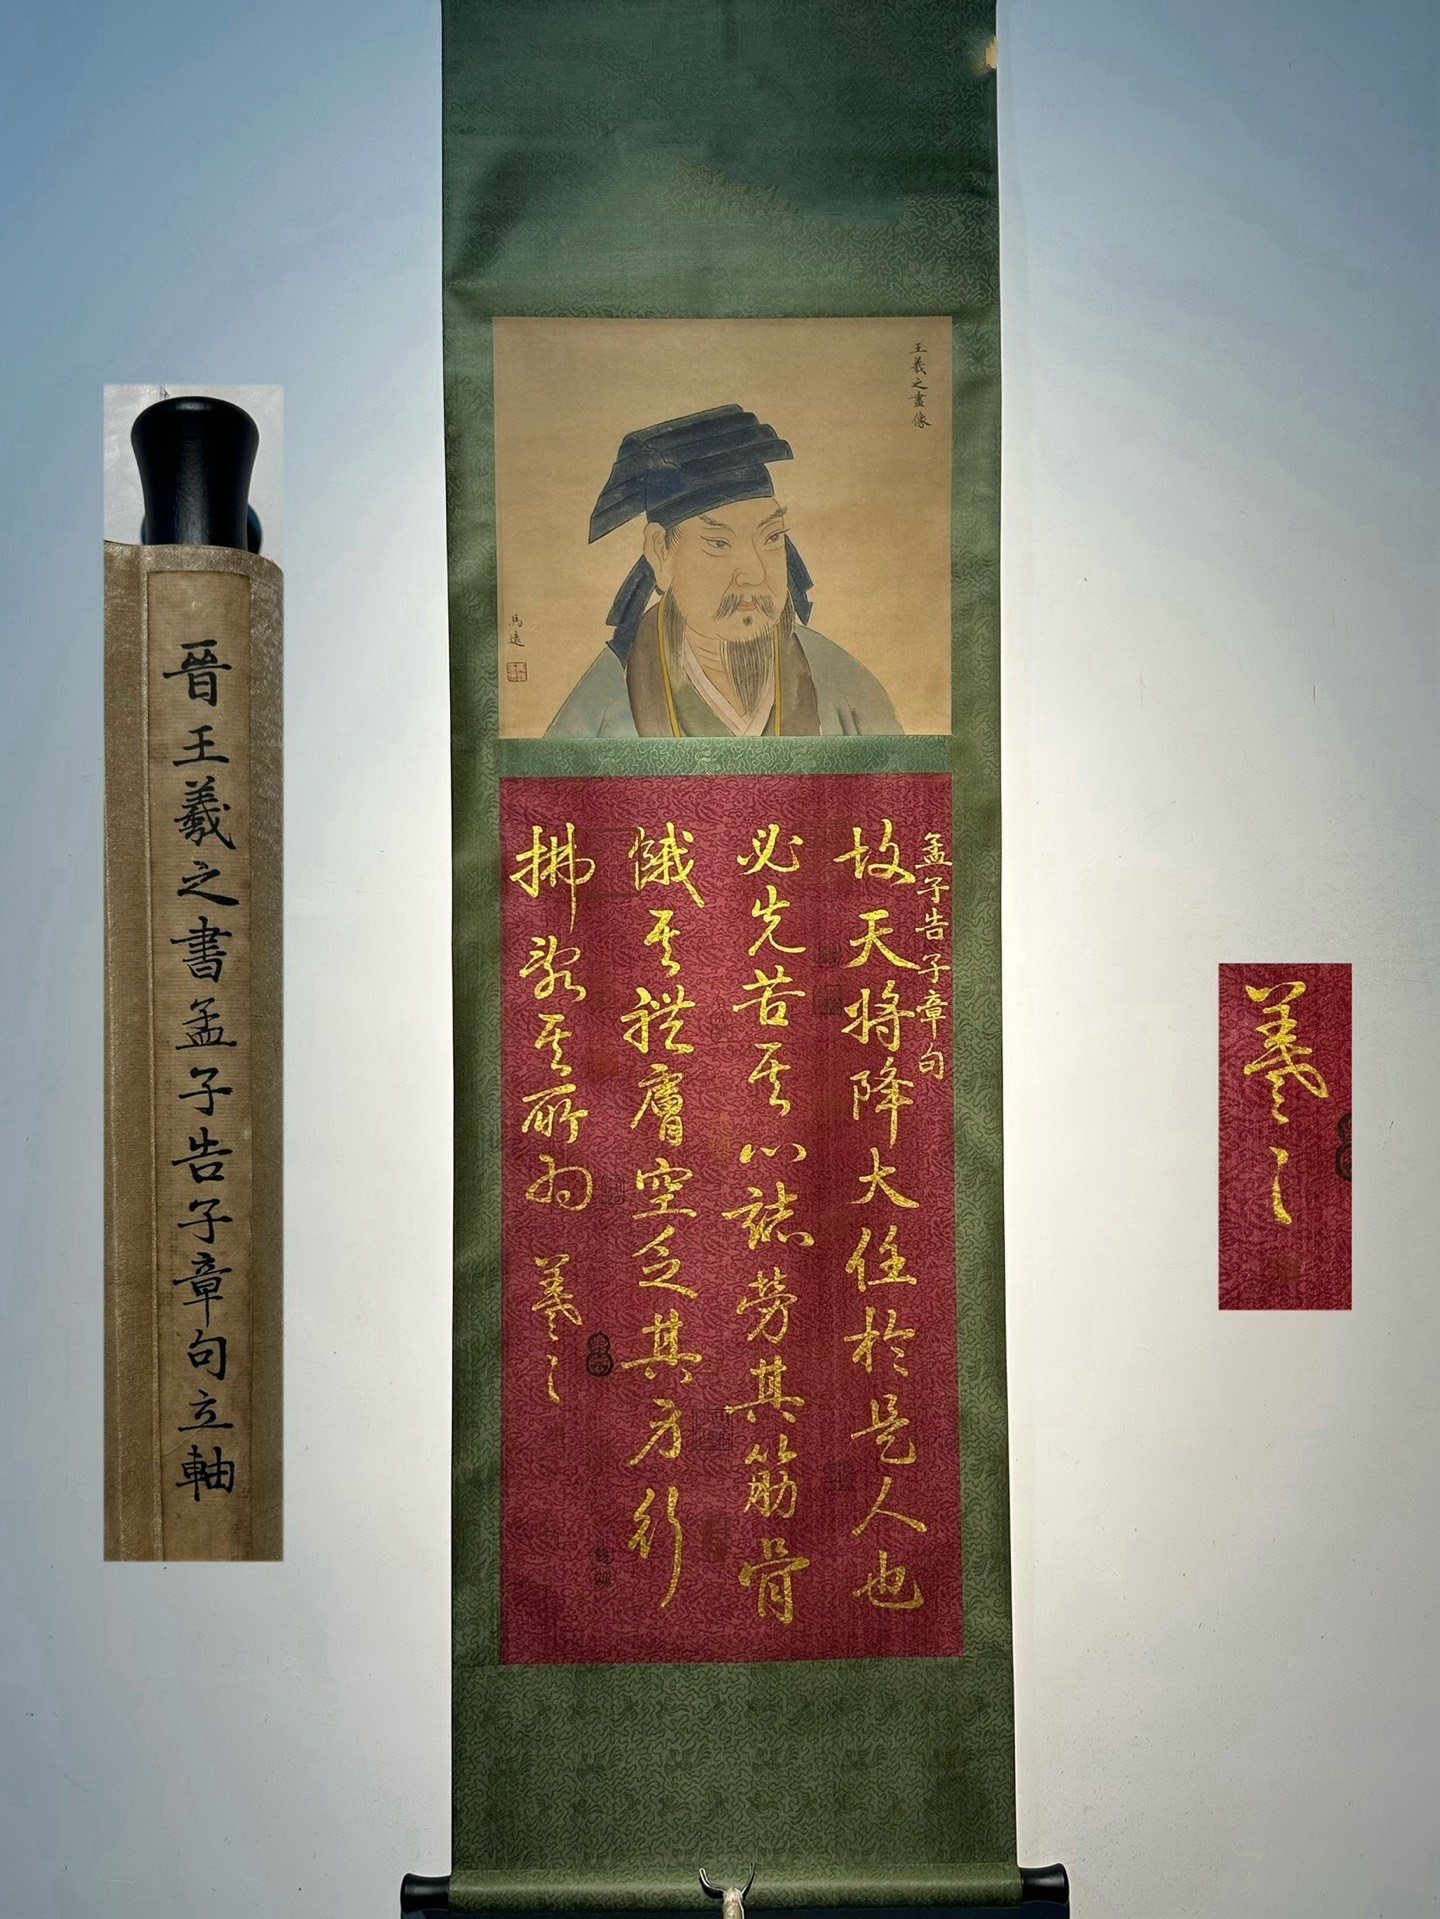 晉王羲之書孟子告子章句立軸
王羲之畫像
馬遠
孟子告子章句
故天將降大任於是人也
必先苦其心志勞其筋骨
餓其體膚空乏其身行
拂亂其所為
羲之
羲之